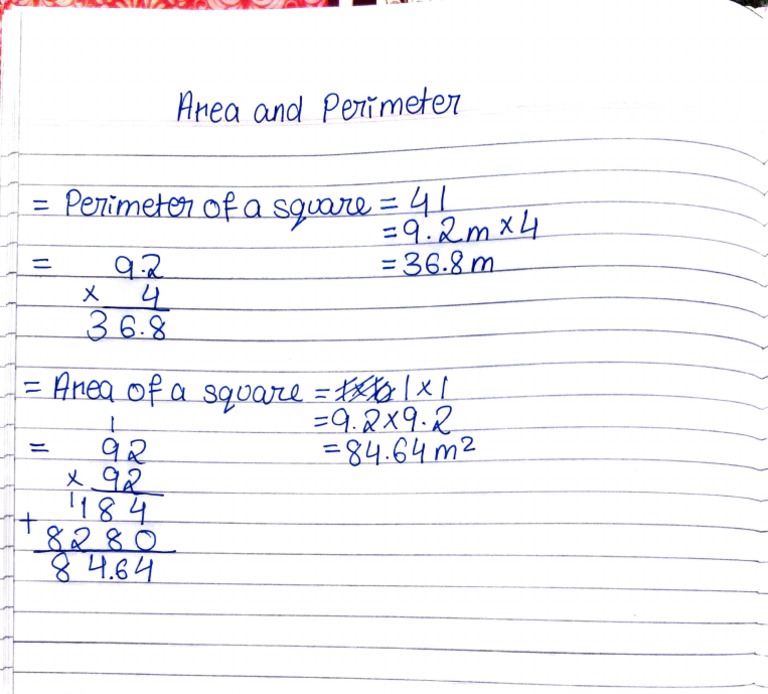 Area and Perimeter
= Perimeter of a square = 4l
= 9.2m × 4
= 9.2 = 36.8m
× 4
36.8
= Area of a square = l × l
= 9.2 × 9.2
1
= 92 = 84.64 m²
× 92
1184
+ 8280
84.64